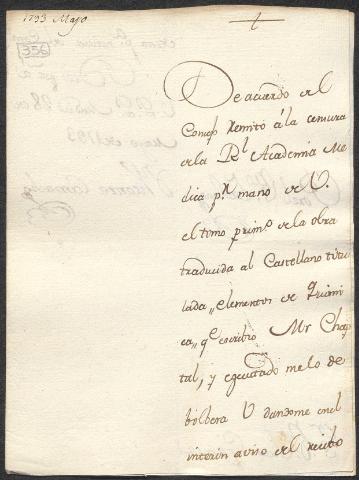 1793 Mayo
+
356
De acuerdo del
Consejo remito á la censura
de la Rl. Academia Me
dica pr. mano de V.
el tomo primo. de la obra
traducida al Castellano titu
lada „ elementos de Quimi
ca „ qe. escribio Mr Chap
tal, y egecutado me lo de
bolbera V dandome en el
interin aviso del recibo